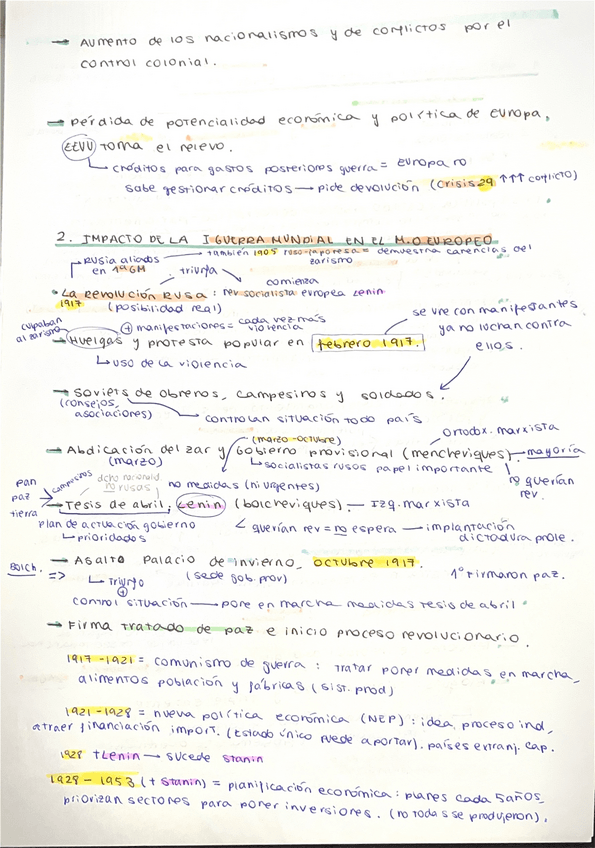 → Aumento de los nacionalismos y de conflictos por el
control colonial.
→ Pérdida de potencialidad económica y política de Europa,
EEUU toma el relevo.
créditos para gastos posteriores guerra = Europa no
sabe gestionar créditos → pide devolución (Crisis 29 ↑↑↑ conflicto)
2. IMPACTO DE LA I GUERRA MUNDIAL EN EL M.O EUROPEO
Rusia aliados → también 1905 = demuestra carencias del
en 1ª GM zarismo
triunfa comienza
• La Revolución Rusa: rev socialista europea Lenin
1917 (posibilidad real)
culpaban
al zarismo
+ manifestaciones = cada vez más
violencia
se une con manifestantes
ya no luchan contra
ellos.
→ Huelgas y protesta popular en febrero 1917.
uso de la violencia
→ Soviets de obreros, campesinos y soldados.
(consejos,
asociaciones) controlan situación todo país
(marzo-octubre) ortodox. marxista
→ Abdicación del zar y Gobierno provisional (mencheviques) → mayoría
(marzo) socialistas rusos papel importante
no querían
rev.
pan
paz
tierra
campesinos
dcho nacionalid.
no rusas
no medidas (ni urgentes)
→ Tesis de abril, Lenin (bolcheviques). — Izq. marxista
plan de actuación gobierno < querían rev = no espera — implantación
prioridades dictadura prole.
→ Asalto Palacio de invierno, octubre 1917.
Bolch. => triunfo (sede gob. prov) 1º firmaron paz.
+
control situación → pone en marcha medidas tesis de abril
→ Firma tratado de paz e inicio proceso revolucionario.
1917-1921 = comunismo de guerra: tratar poner medidas en marcha,
alimentos población y fábricas (sist. prod)
1921-1928 = nueva política económica (NEP): idea, proceso ind,
atraer financiación import. (estado único puede aportar). países extranj. cap.
1928 †Lenin → sucede Stanin
1928 - 1953 († Stanin) = planificación económica: planes cada 5 años,
priorizan sectores para poner inversiones. (no todas se produjeron).